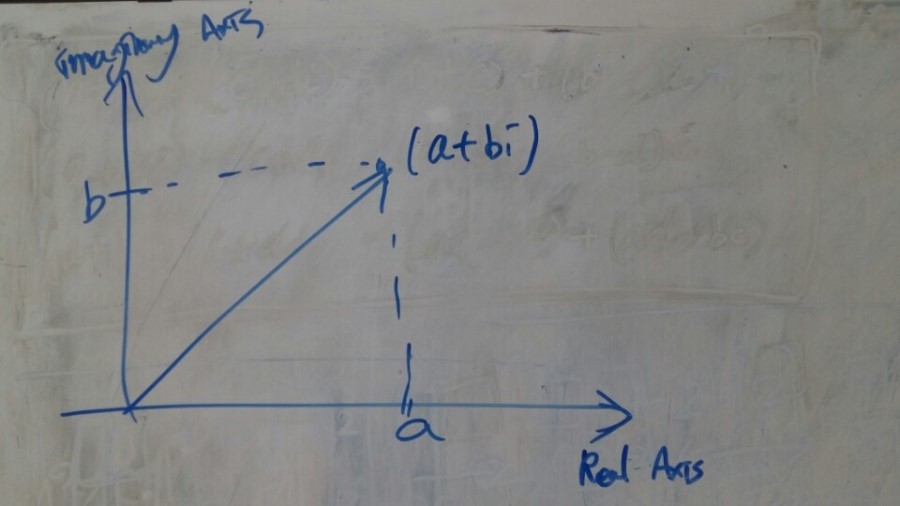 Imaginary Axis
(a+bi)
b
a
Real Axis